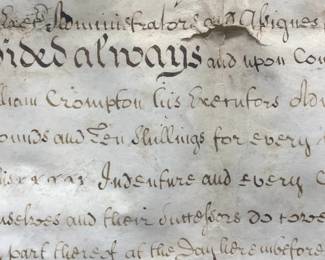 Exe Administrators or Assignes
vided always and upon Con
lliam Crompton his Executors Adm
ounds and Ten Shillings for every
Indenture and every
mselves and their Successors do cove
part thereof at the Day here inbefore